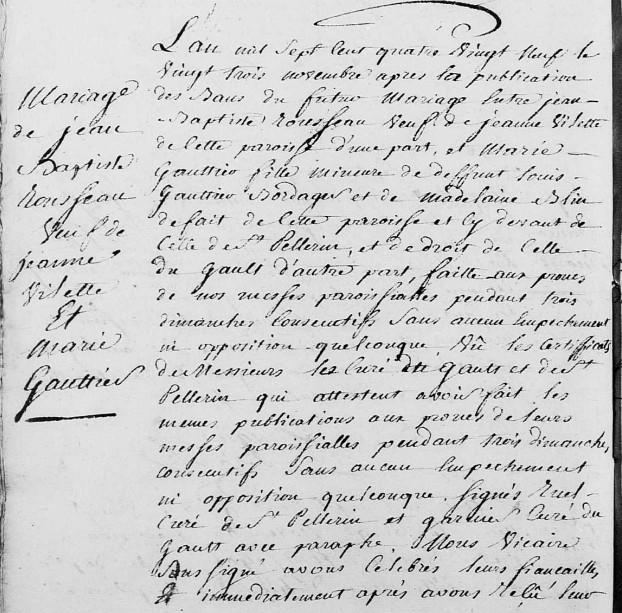 Mariage
de jean
Baptiste
Rousseau
Veuf de
jeanne
Vilette
Et
Marie
Gauttier
L'an mil Sept Cent quatre Vingt Neuf le
Vingt trois novembre apres la publication
des Bans du futur Mariage Entre jean-
Baptiste Rousseau Veuf de jeanne Vilette
de Cette paroisse d'une part, et Marie
Gauttier fille mineure de deffunt Louis-
Gauttier Bordages et de Madelaine Blin
de fait de Cette paroisse et Cy devant de
Celle de St Pellerin, et de droit de Celle
du Gault d'autre part, faitte aux prones
de nos messes paroissialles pendant trois
dimanches Consecutifs Sans aucun Empechement
ni opposition quelconque, Vû les Certifficats
de Messieurs les Curé du Gault et de St
Pellerin qui attestent avoir fait les
memes publications aux prones de leurs
messes paroissialles pendant trois dimanche,
Consecutifs Sans aucun Empechement
ni opposition quelconque. Signés
Curé de St Pellerin et Curé du
Gault avec paraphe. Nous Vicaire
Sous signé avons Celebrés leurs fiancailles,
& immediatement aprés avons Reçû leur